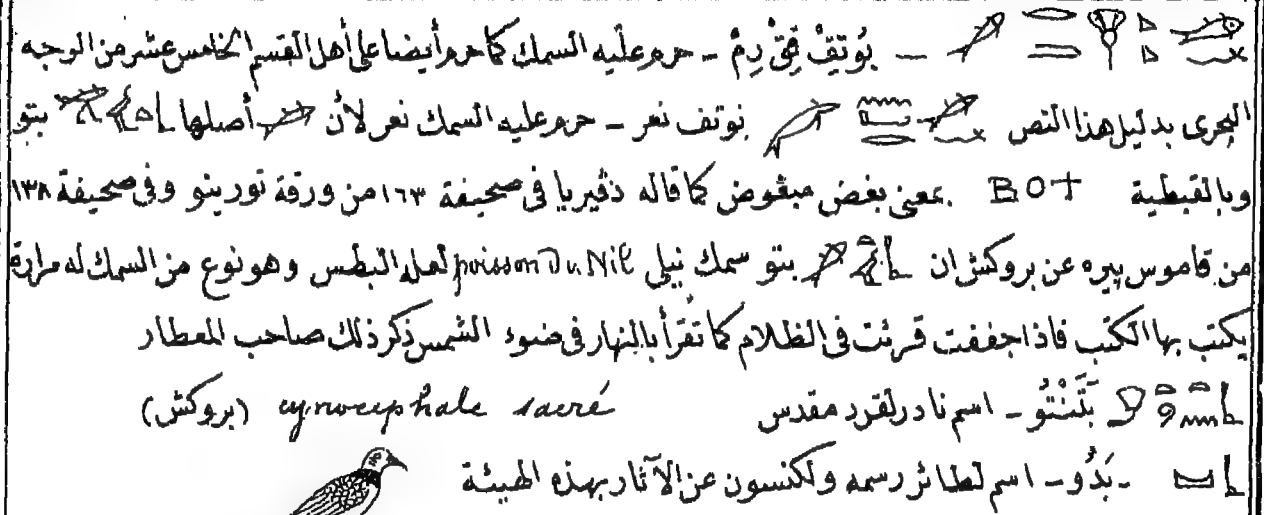 ـ بُوتِفْ قِقْ رِمْ ـ حرم عليه السمك كما حرم أيضا على أهل القسم الخامس عشر من الوجه
البحرى بدليل هذا النص نوتف نعر ـ حرم عليه السمك نعر لأن أصلها بتو
وبالقبطية BOT بمعنى بغض مبغوض كما قاله ذفيريا فى صحيفة ١٦٣ من ورقة تورينو وفى صحيفة ١٣٨
من قاموس بيره عن بروكش ان بتو سمك نيلى poisson du Nil لعله البطس وهو نوع من السمك له مرارة
يكتب بها الكتب فاذا جففت قرئت فى الظلام كما تقرأ بالنهار فى ضوء الشمس ذكر ذلك صاحب المعطار
بَنَنْتُو ـ اسم نادر لقرد مقدس cynocephale sacré (بروكش)
ـ بَدُو ـ اسم لطائر رسمه ولكنسون عن الآثار بهذه الهيئة